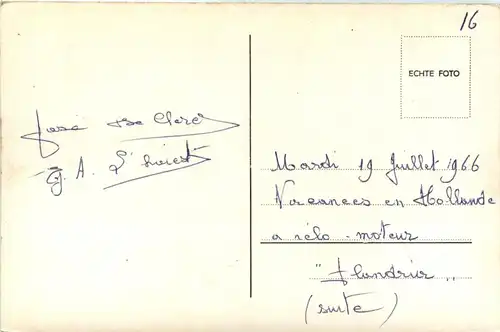 16
ECHTE FOTO
José De Clerc
G. A. L'hoest
Mardi 19 Juillet 1966
Vacances en Hollande
a vélo-moteur
"Flandria"
(suite)